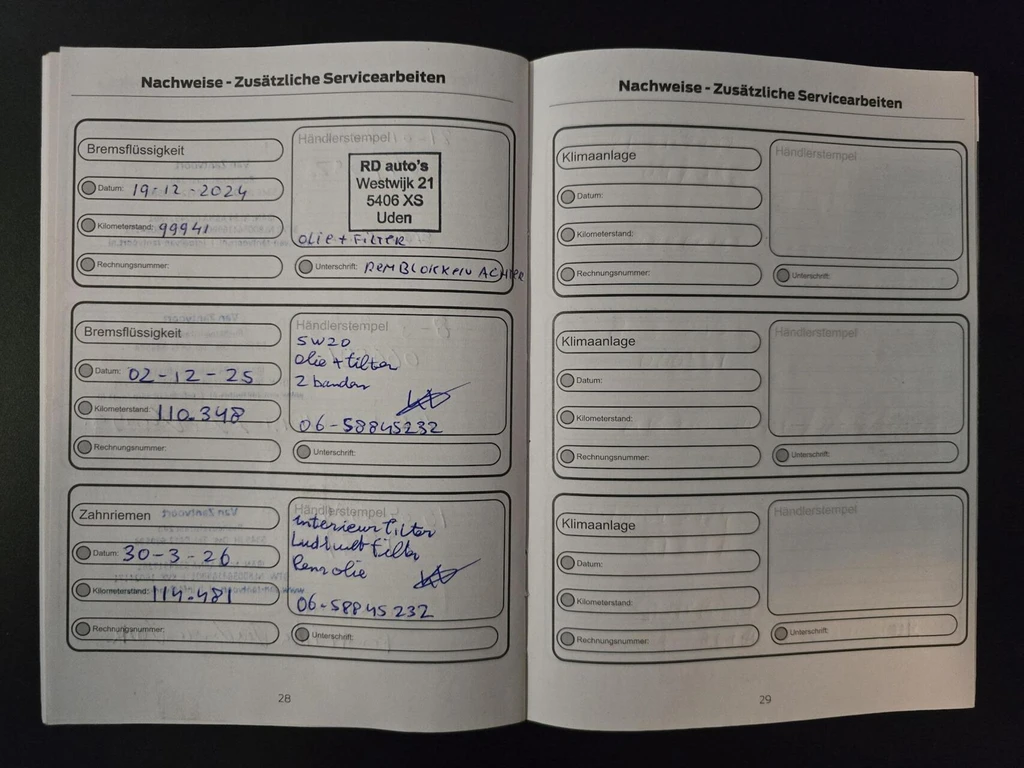 Nachweise - Zusätzliche Servicearbeiten
Bremsflüssigkeit
Datum: 19-12-2024
Kilometerstand: 99941
Rechnungsnummer:
Händlerstempel
RD auto's
Westwijk 21
5406 XS
Uden
olie + FilTER
Unterschrift: REMBLOKKEN ACHTER
Bremsflüssigkeit
Datum: 02-12-25
Kilometerstand: 110.348
Rechnungsnummer:
Händlerstempel
5W20
olie + filter
2 banden
06-58845232
Unterschrift:
Zahnriemen
Datum: 30-3-26
Kilometerstand: 114.481
Rechnungsnummer:
Händlerstempel
interieur filter
filter
olie
06-58845232
Unterschrift:
28
Nachweise - Zusätzliche Servicearbeiten
Klimaanlage
Datum:
Kilometerstand:
Rechnungsnummer:
Händlerstempel
Unterschrift:
Klimaanlage
Datum:
Kilometerstand:
Rechnungsnummer:
Händlerstempel
Unterschrift:
Klimaanlage
Datum:
Kilometerstand:
Rechnungsnummer:
Händlerstempel
Unterschrift:
29